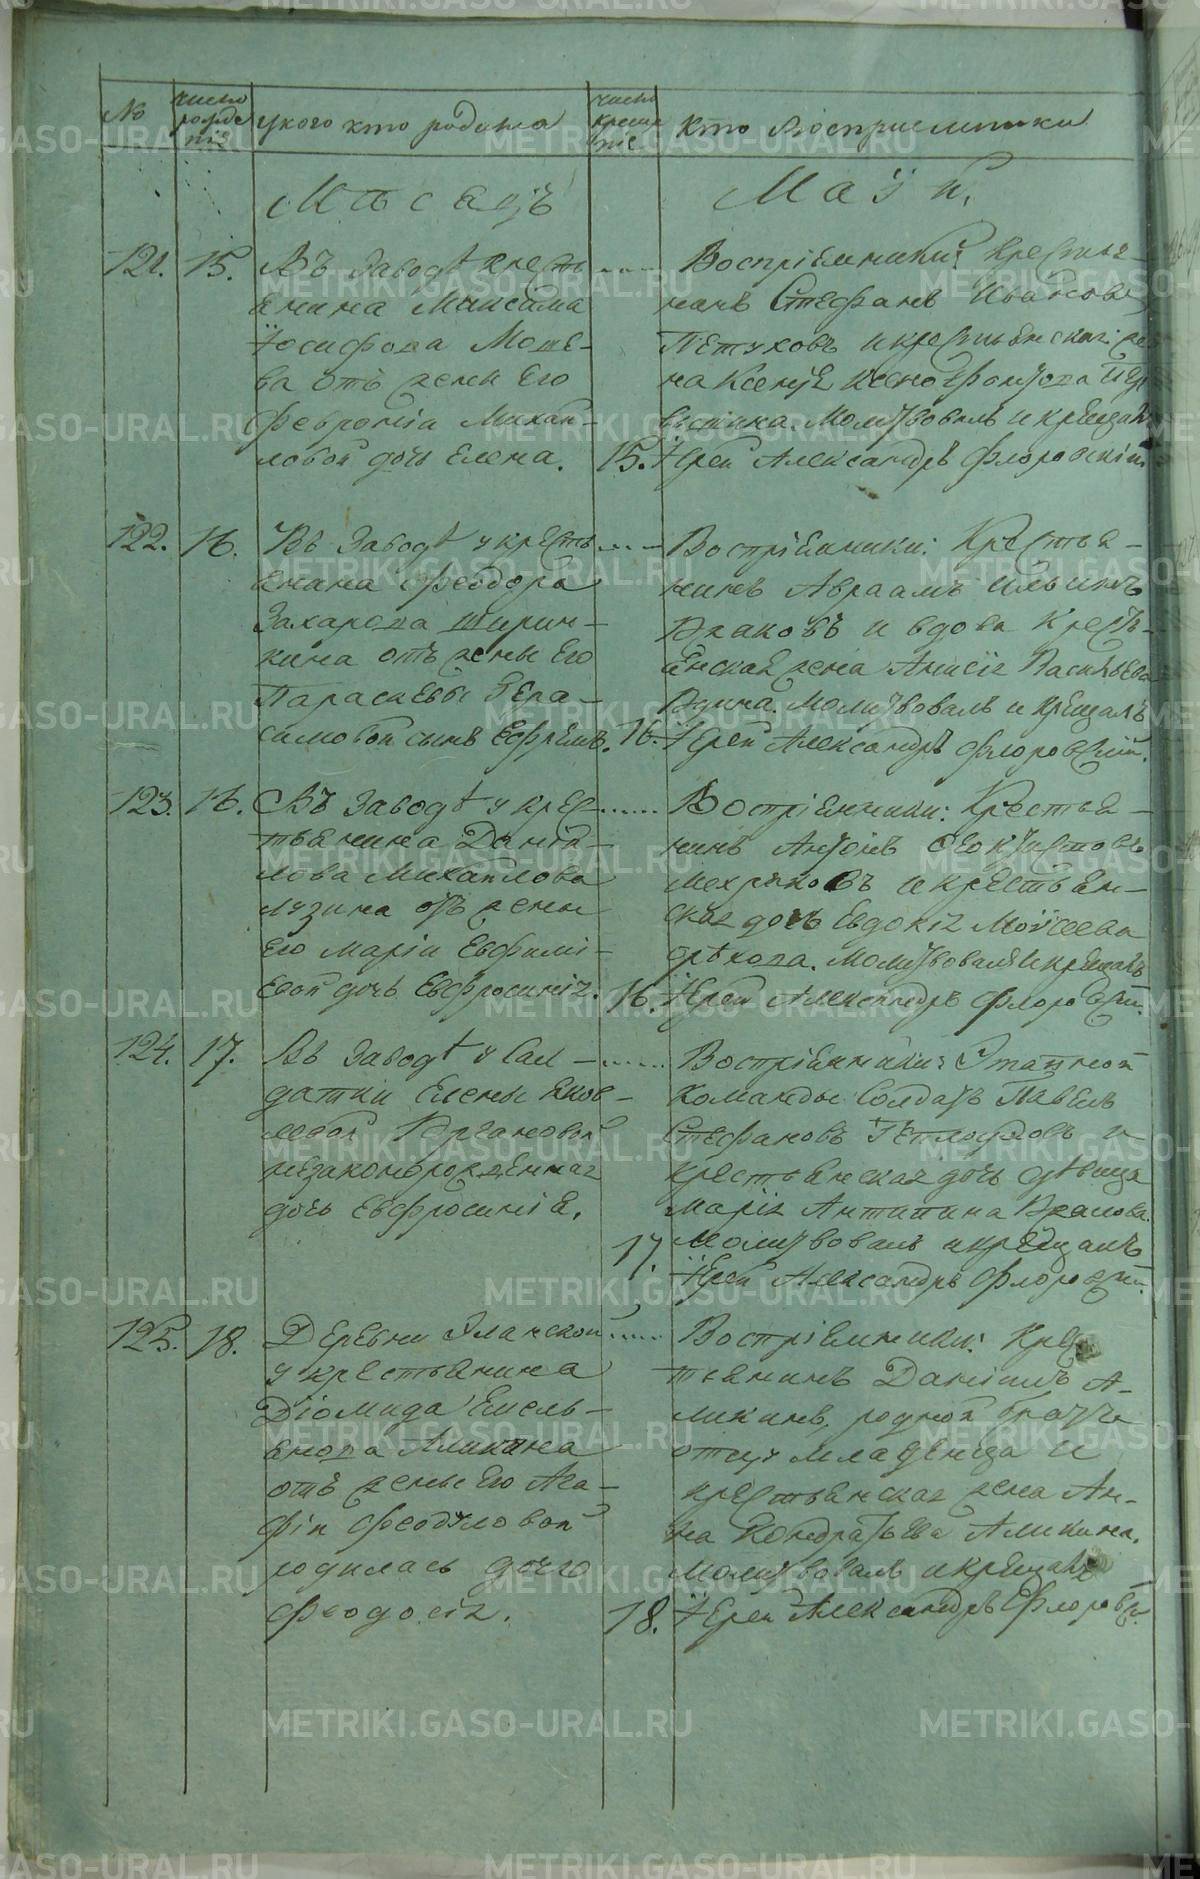 №
число рожде нія
у кого кто родился
число креще нія
Кто Восприемники
Мѣсяцъ
Маій.
121. 15.
Въ Заводѣ кресть
янина Максима
Іосифова
ва отъ жены Его
Февроніи Михай-
ловой дочь Елена.
Воспріемники: Крестья-
нинъ Стефанъ Ивановъ
Пѣтуховъ и крестьянская же-
на Ксенія Ксенофонтова
Молитвовалъ и крещалъ
15. Іерей Александръ Флоровскій
122. 16.
Въ Заводѣ у кресть
янина Феодора
Захарова Ширин-
кина отъ жены Его
Параскевы Гера-
симовой сынъ Ефремъ.
Воспріемники: Крестья-
нинъ Авраамъ Ильинъ
и вдова Кресть-
янская жена Анисія Васильева
Молитвовалъ и крещалъ
16. Іерей Александръ Флоровскій.
123. 16.
Въ Заводѣ у крес-
тьянина Даніи-
лова Михайлова
Лузина отъ жены
Его Маріи Евфимі-
евой дочь Евфросинія.
Воспріемники: Крестья-
нинъ
и крестьян-
ская дочь Евдокія Моѵсеева
Молитвовалъ и крещалъ
16. Іерей Александръ Флоровскій.
124. 17.
Въ Заводѣ у Сал-
датки Елены Яков-
левой
незаконорожденная
дочь Евфросинія.
Воспріемники: Штатной
Команды Солдатъ Павелъ
Стефановъ Теплоуховъ и
крестьянская дочь дѣвица
Марія Антипина
Молитвовалъ и крещалъ
17. Іерей Александръ Флоровскій.
125. 18.
Деревни Еланской
у крестьянина
Діомида Емель-
янова Аликина
отъ жены Его Ага-
фіи Феодуловой
родилась дочь
Феодосія.
Воспріемники: Крес
тьянинъ Даніилъ А-
ликинъ, родной братъ
отцу младенца и
крестьянская жена Ан-
на Кондратьева Аликина.
Молитвовалъ и крещалъ
18. Іерей Александръ Флоровскій.
METRIKI.GASO-URAL.RU